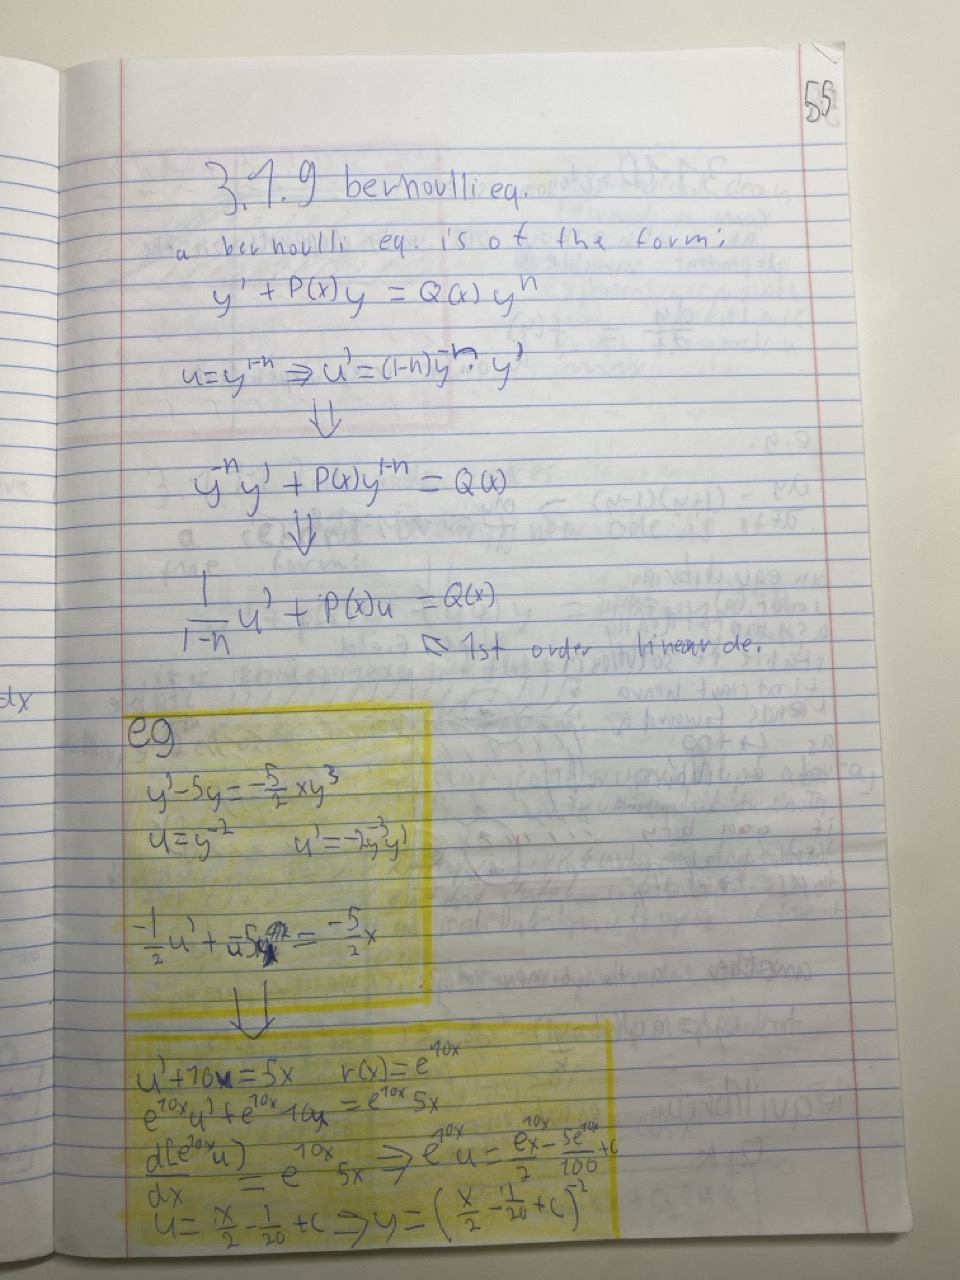 55
3.1.9 bernoulli eq.
a bernoulli eq. is of the form:
y' + P(x)y = Q(x) yⁿ
u=y¹⁻ⁿ ⇒ u' = (1-n)y⁻ⁿ · y'
⇓
y⁻ⁿy' + P(x)y¹⁻ⁿ = Q(x)
⇓
1/(1-n) u' + P(x)u = Q(x)
↖ 1st order linear de.
dx
eg
y'-5y = -5/2 xy³
u = y⁻² u' = -2y⁻³y'
-1/2 u' + -5u = -5/2 x
⇓
u'+10u = 5x r(x) = e¹⁰ˣ
e¹⁰ˣu' + e¹⁰ˣ 10u = e¹⁰ˣ 5x
d[e¹⁰ˣu]/dx = e¹⁰ˣ 5x ⇒ e¹⁰ˣu = e¹⁰ˣx/2 - 5e¹⁰ˣ/100 + c
u = x/2 - 1/20 + c ⇒ y = (x/2 - 1/20 + c)⁻²